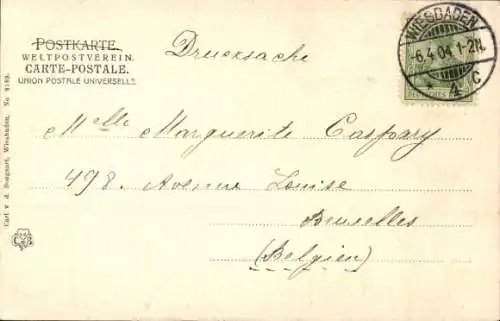 POSTKARTE.
WELTPOSTVEREIN.
CARTE-POSTALE.
UNION POSTALE UNIVERSELLE.
Drucksache
WIESBADEN
6.4.04 1-2N.
* 4 C
DEUTSCHES
Melle Marguerite Caspary
498. Avenue Louise
Bruxelles
(Belgien)
Carl v. d. Boogaart, Wiesbaden, No